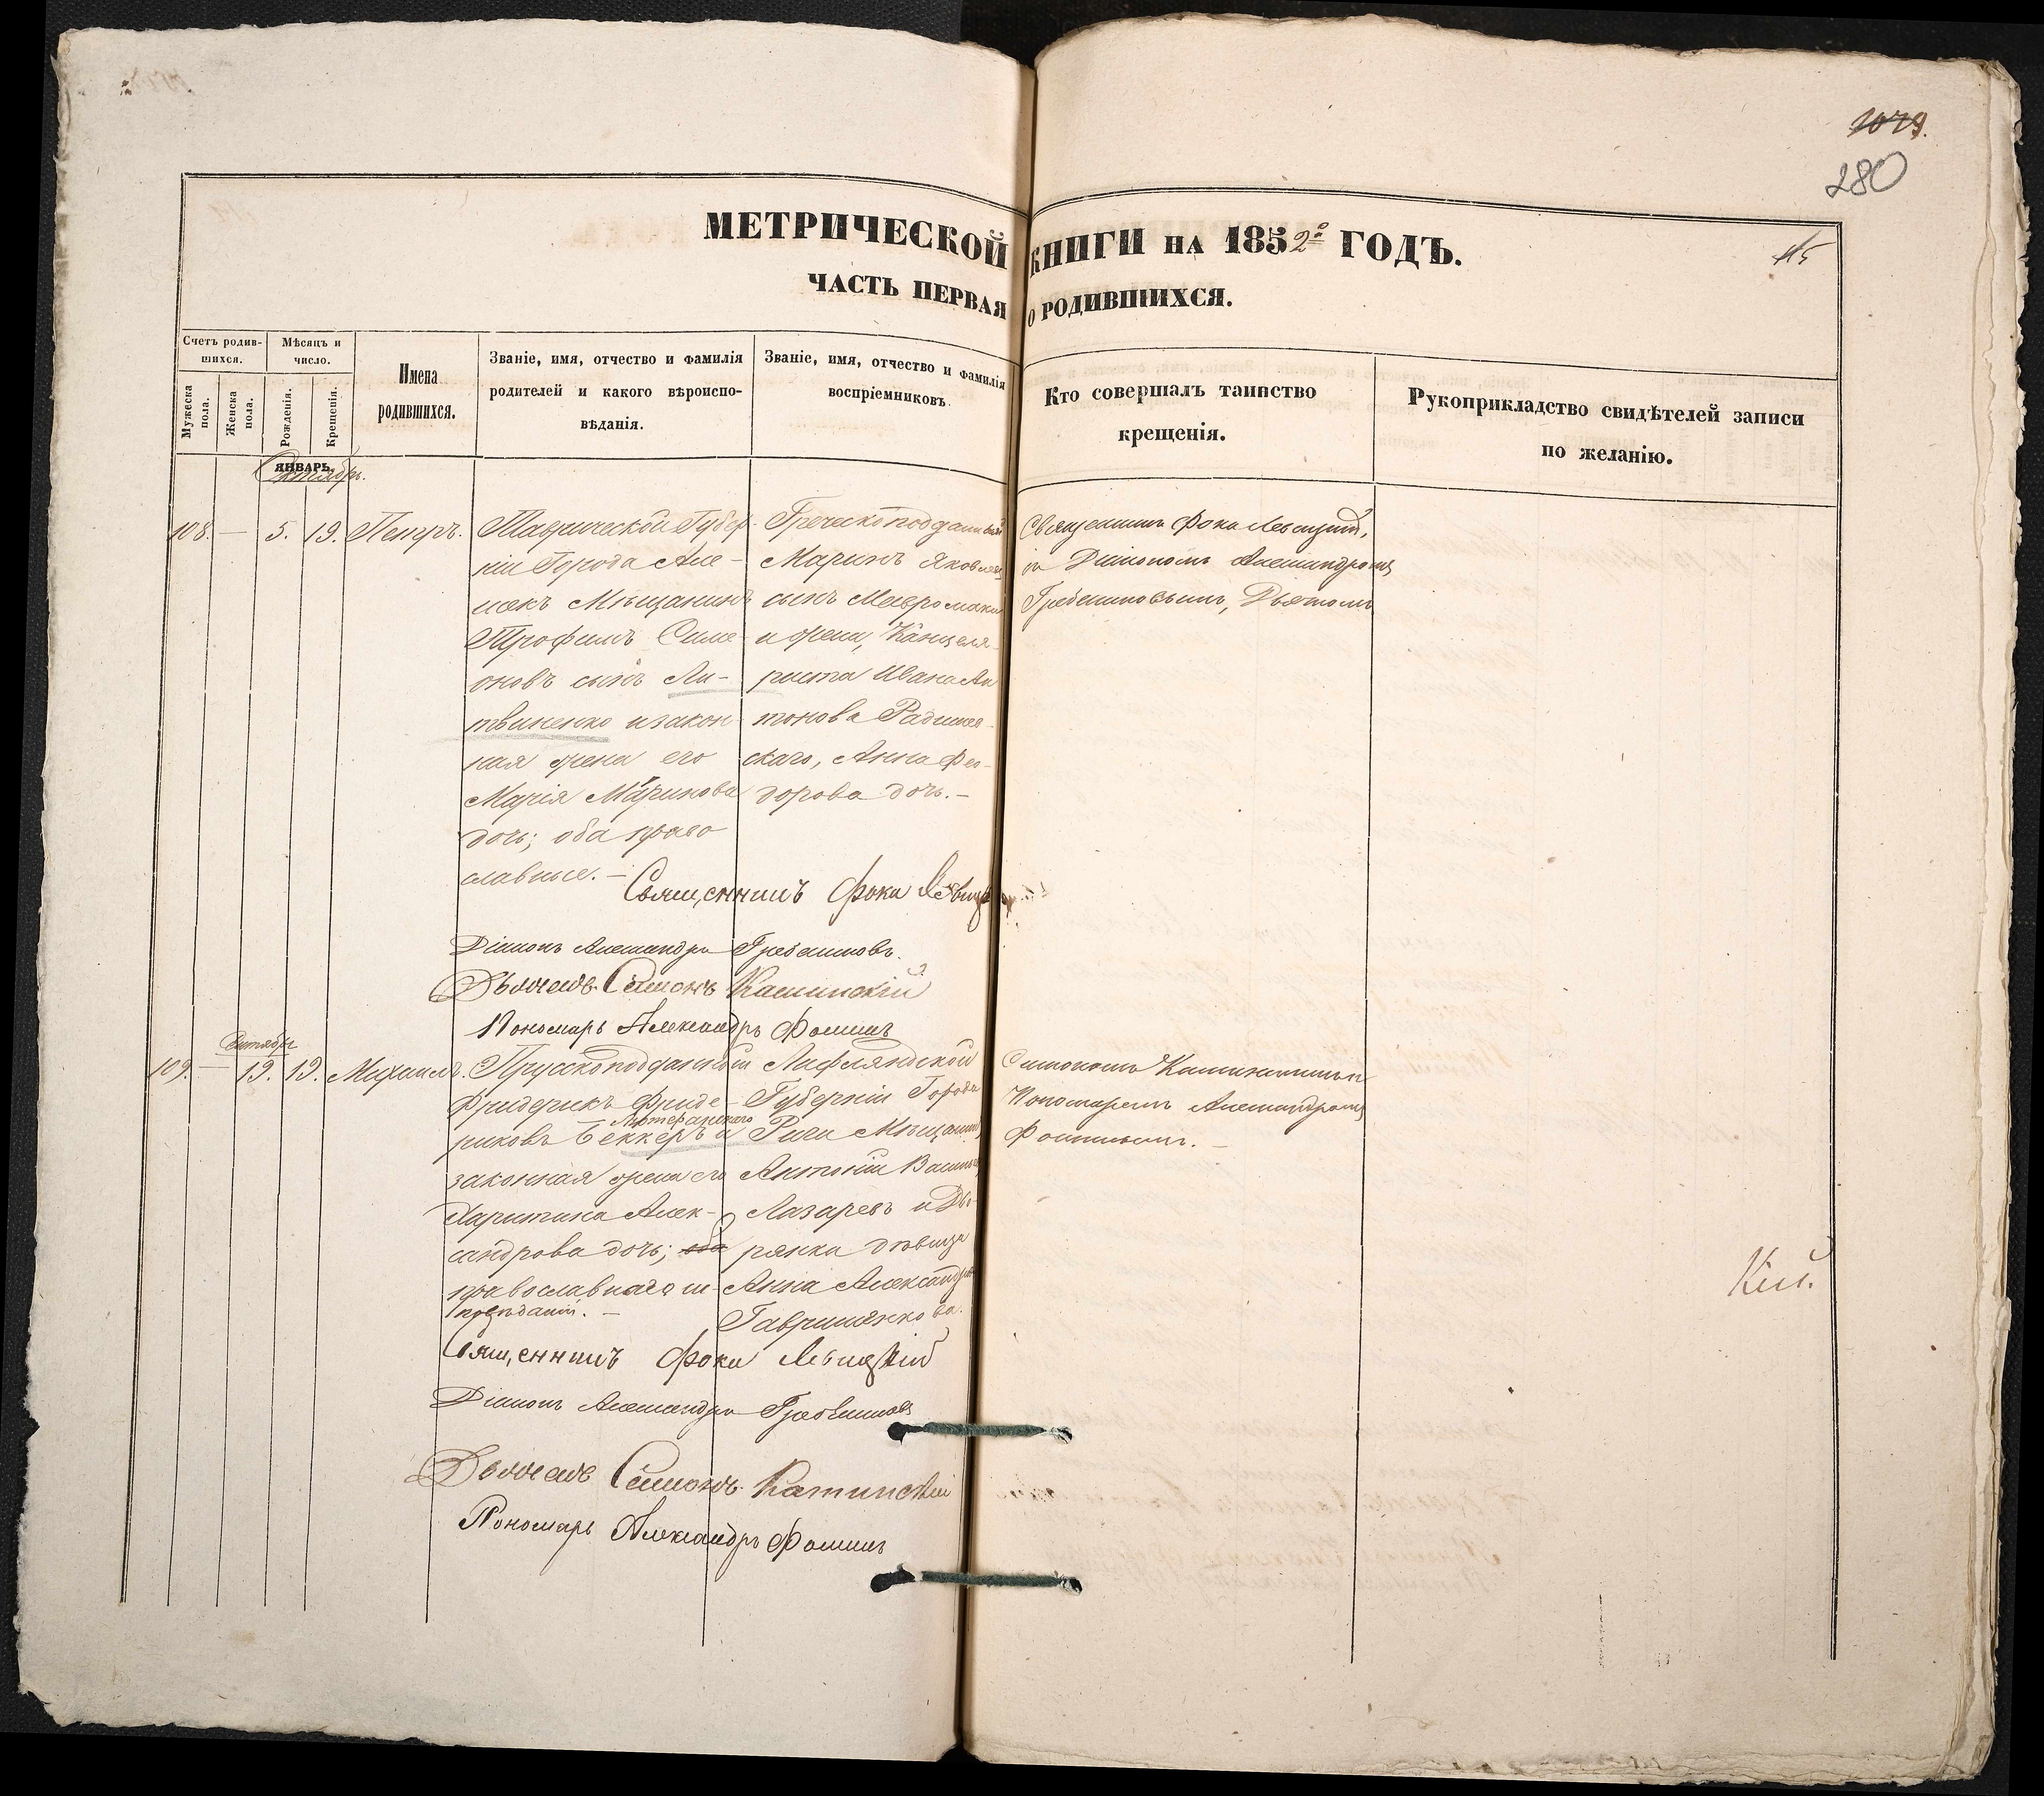 1079.
280
МЕТРИЧЕСКОЙ КНИГИ НА 1852º ГОДЪ.
ЧАСТЬ ПЕРВАЯ О РОДИВШИХСЯ.
Счетъ родив-
шихся.
Мужеска
пола.
Женска
пола.
Мѣсяцъ и
число.
Рожденія.
Крещенія.
Имена
родившихся.
Званіе, имя, отчество и фамилія
родителей и какого вѣроиспо-
вѣданія.
Званіе, имя, отчество и фамилія
воспріемниковъ.
Кто совершалъ таинство
крещенія.
Рукоприкладство свидѣтелей записи
по желанію.
ЯНВАРЬ.
108. — 5. 19. Петръ.
Таврической Губер-
ніи Города Але-
шекъ Мѣщанинъ
Трофимъ Симе-
оновъ сынъ Ли-
твиненко и закон-
ная жена его
Марія Маринова
дочь; оба право
славные. —
Греческоподданный
Маринъ Яковлевъ
сынъ Мавромаки
и жена, Канцеля-
риста Ивана Ан
тонова Радишев-
скаго, Анна Фео-
дорова дочь. —
Священникъ Фока Левицкій,
съ Діакономъ Александромъ
Гребенниковымъ, Дьячкомъ
Священникъ Фока Левицкій
Діаконъ Александръ Гребенниковъ.
Дьячекъ Симонъ Каминскій
Пономарь Александръ Фоминъ
Октября
109. — 19. 19. Михаилъ.
Прускоподданный
Фридерикъ Фриде-
Лютеранскаго
риковъ Беккеръ и
законная жена его
Харитина Алек-
сандрова дочь; оба
православнаго ис-
повѣданій. —
Лифляндской
Губерніи Города
Риги Мѣщанинъ
Антоній Васильевъ
Лазаревъ и Дво-
рянка дѣвица
Анна Александро
Гавришенкова.
Симономъ Каминскимъ и
Пономаремъ Александромъ
Фоминымъ. —
Священникъ Фока Левицкій
Діаконъ Александръ Гребенниковъ
Дьячекъ Симонъ Каминскій
Пономарь Александръ Фоминъ